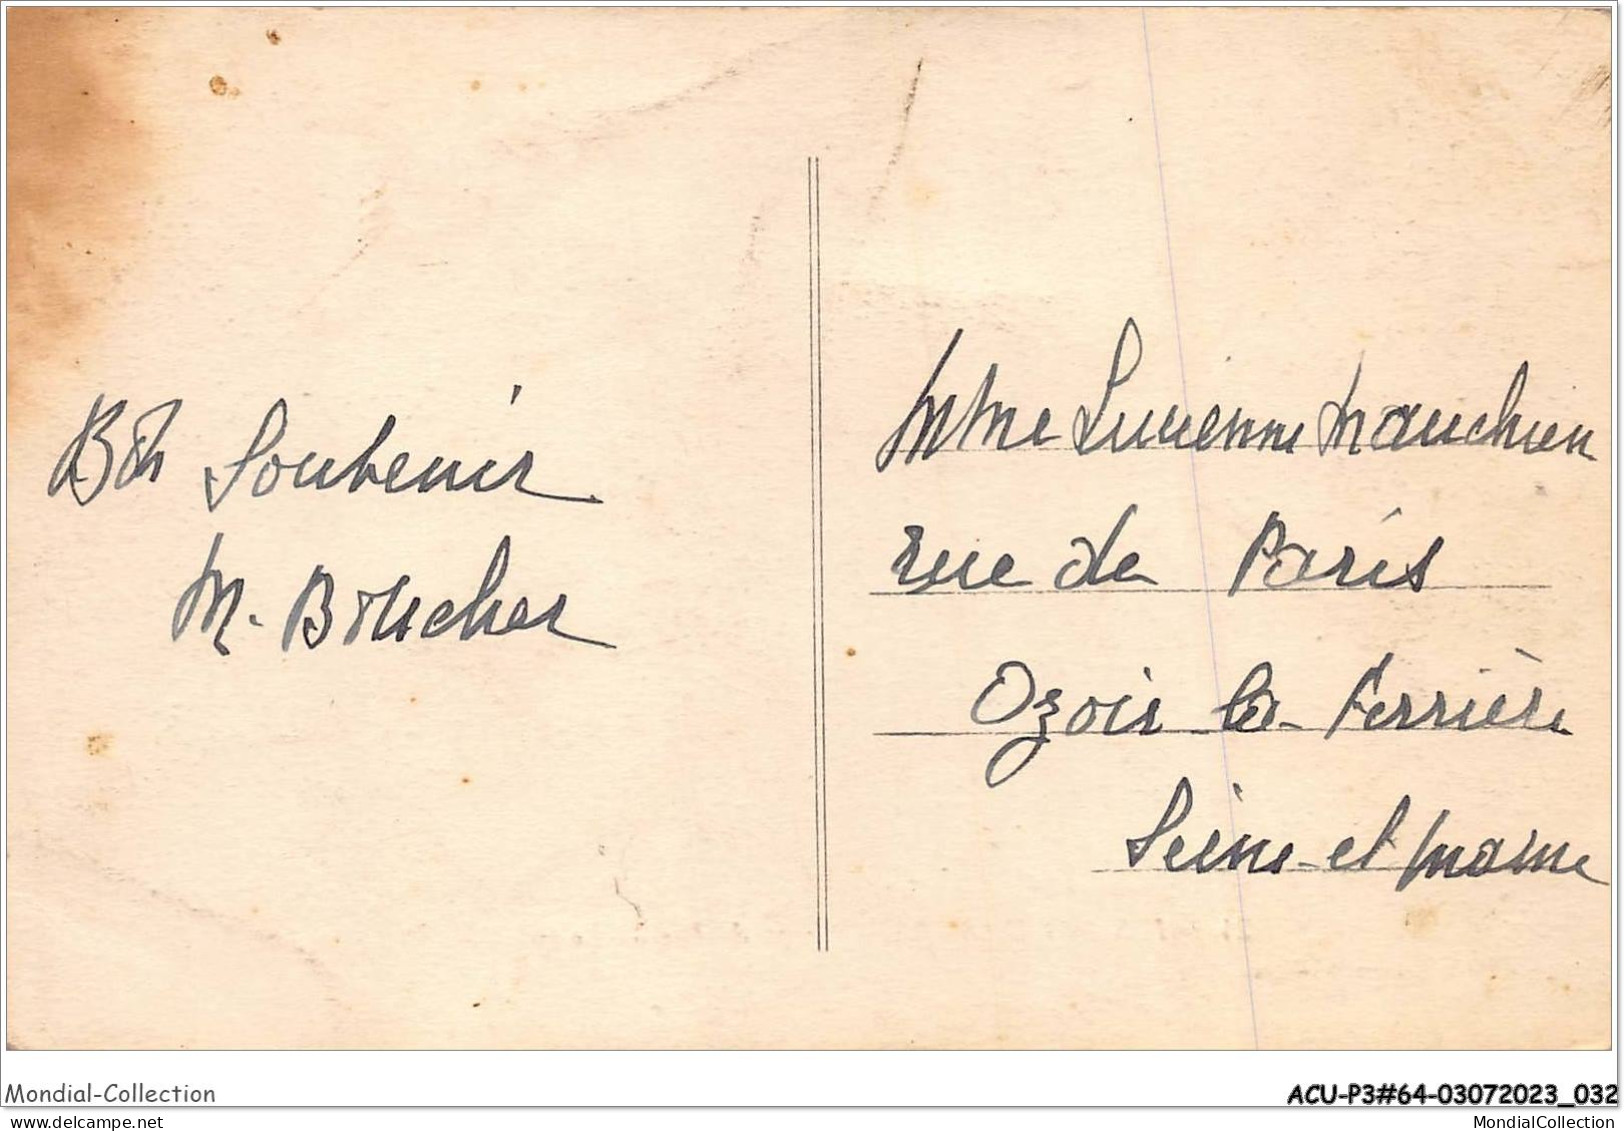 Bon Souvenir
M. Boucher
Mme Lucienne Mauchien
rue de Paris
Ozoir la Ferrière
Seine et Marne
Mondial-Collection
ACU-P3#64-03072023_032
delcampe.net
MondialCollection